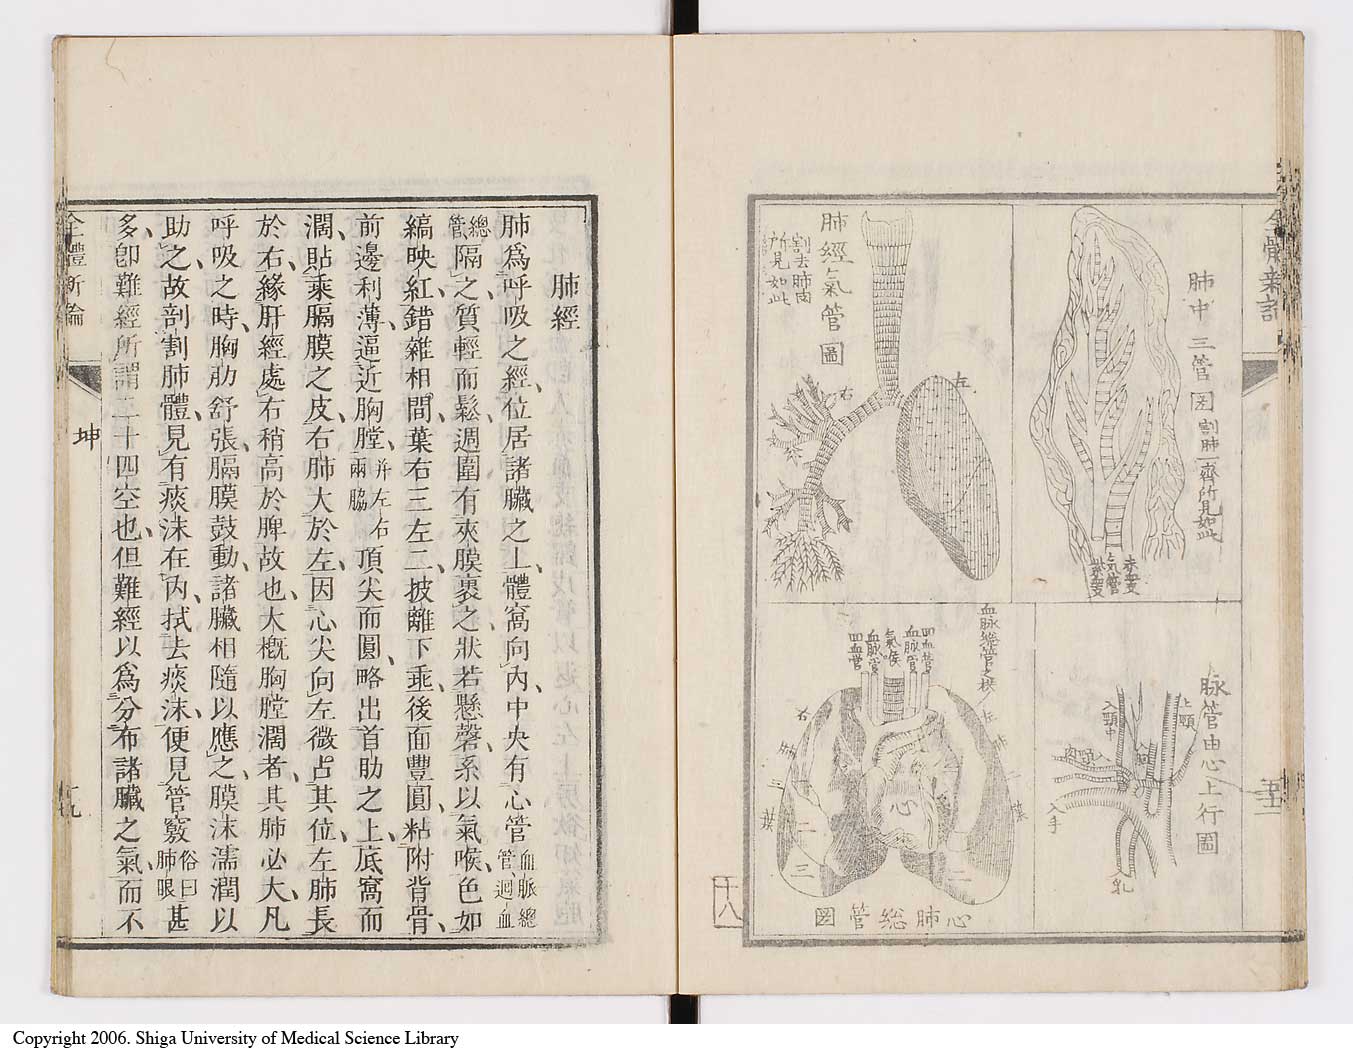 全體新論
肺中三管圖
割肺一齊所見如此
氣管
肺經氣管圖
割去肺肉所見如此
左
右
脉管由心上行圖
上頸
入頸中
入手
入乳
血脉總管之枝
回血管
血脉管
氣喉
血脉管
回血管
左
右
肺
葉
肺
葉
心
一
二
三
一
二
心肺總管圖
十八
肺經
肺爲呼吸之經、位居諸臟之上、體窩向內、中央有心管血脈總管、迴血
總管隔之、質輕而鬆、週圍有夾膜裹之、狀若懸磬、系以氣喉、色如
縞映紅、錯雜相間、葉右三左二、披離下垂、後面豐圓、粘附背骨、
前邊利薄、逼近胸膛、并左右兩脇頂尖而圓、略出首肋之上、底窩而
濶、貼乘膈膜之皮、右肺大於左、因心尖向左、微占其位、左肺長
於右、緣肝經處右、稍高於脾故也、大槪胸膛濶者、其肺必大、凡
呼吸之時、胸肋舒張、膈膜鼓動、諸臟相隨以應之、膜沫濡潤以
助之、故剖割肺體、見有痰沫在內、拭去痰沫、便見管竅俗曰肺眼甚
多、卽難經所謂二十四空也、但難經以爲分布諸臟之氣、而不
全體新論
坤
十九